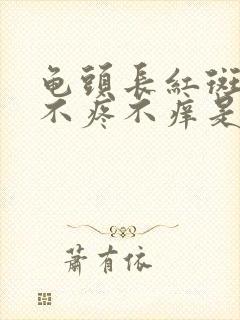 龟頭長紅斑
不疼不痒是
蕭有依